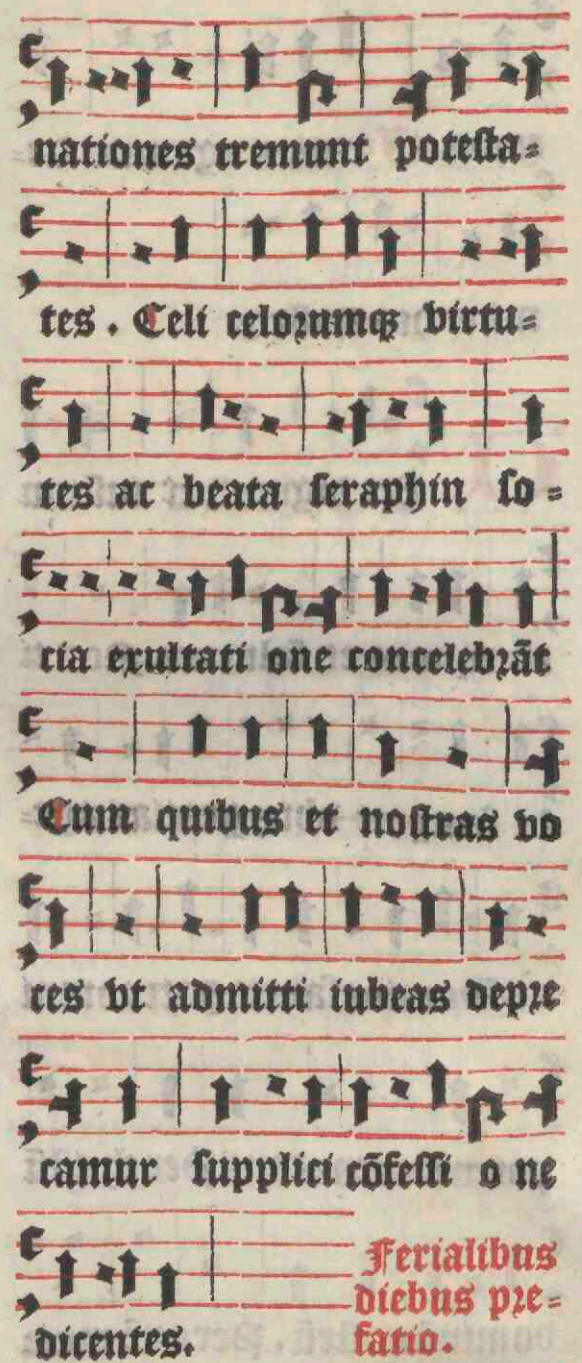 nationes tremunt potesta=
tes. Celi celorumqꝫ virtu=
tes ac beata seraphin so=
cia exultati one concelebrāt
Cum quibus et nostras vo
ces vt admitti iubeas depre
camur supplici cōfessi o ne
dicentes.
Ferialibus
diebus pre=
fatio.